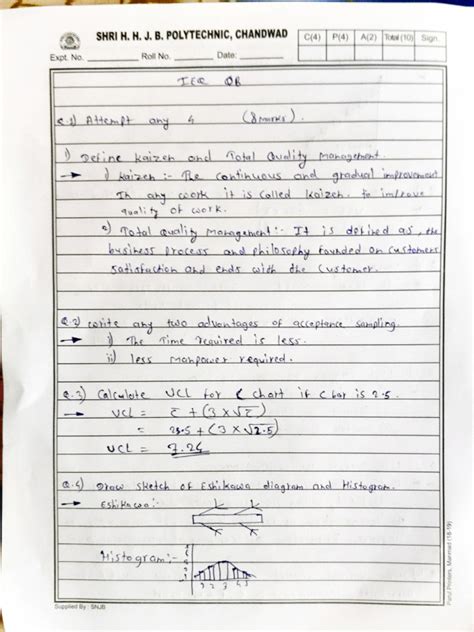 SHRI H. H. J. B. POLYTECHNIC, CHANDWAD
C(4) P(4) A(2) Total (10) Sign.
Expt. No. Roll No. Date:
IEQ QB
Q.1) Attempt any 4 (8 marks).
1) Define Kaizen and Total Quality Management.
→ 1) Kaizen :- The continuous and gradual improvement
In any work it is called Kaizen. to improve
quality of work.
2) Total Quality Management:- It is defined as, the
business process and philosophy founded on customers
satisfaction and ends with the customer.
Q.2) write any two advantages of acceptance sampling.
→ i) The Time required is less.
ii) less manpower required.
Q.3) Calculate UCL for C chart if C bar is 2.5.
→ UCL = c̅ + (3 × √c̅)
= 2.5 + (3 × √2.5)
UCL = 7.24
Q.4) Draw sketch of Eshikawa diagram and Histogram.
→ Eshikawa:-
Histogram:-
1 2 3 4 5
Supplied By : SNJB
Parul Printers, Manmad (18-19)